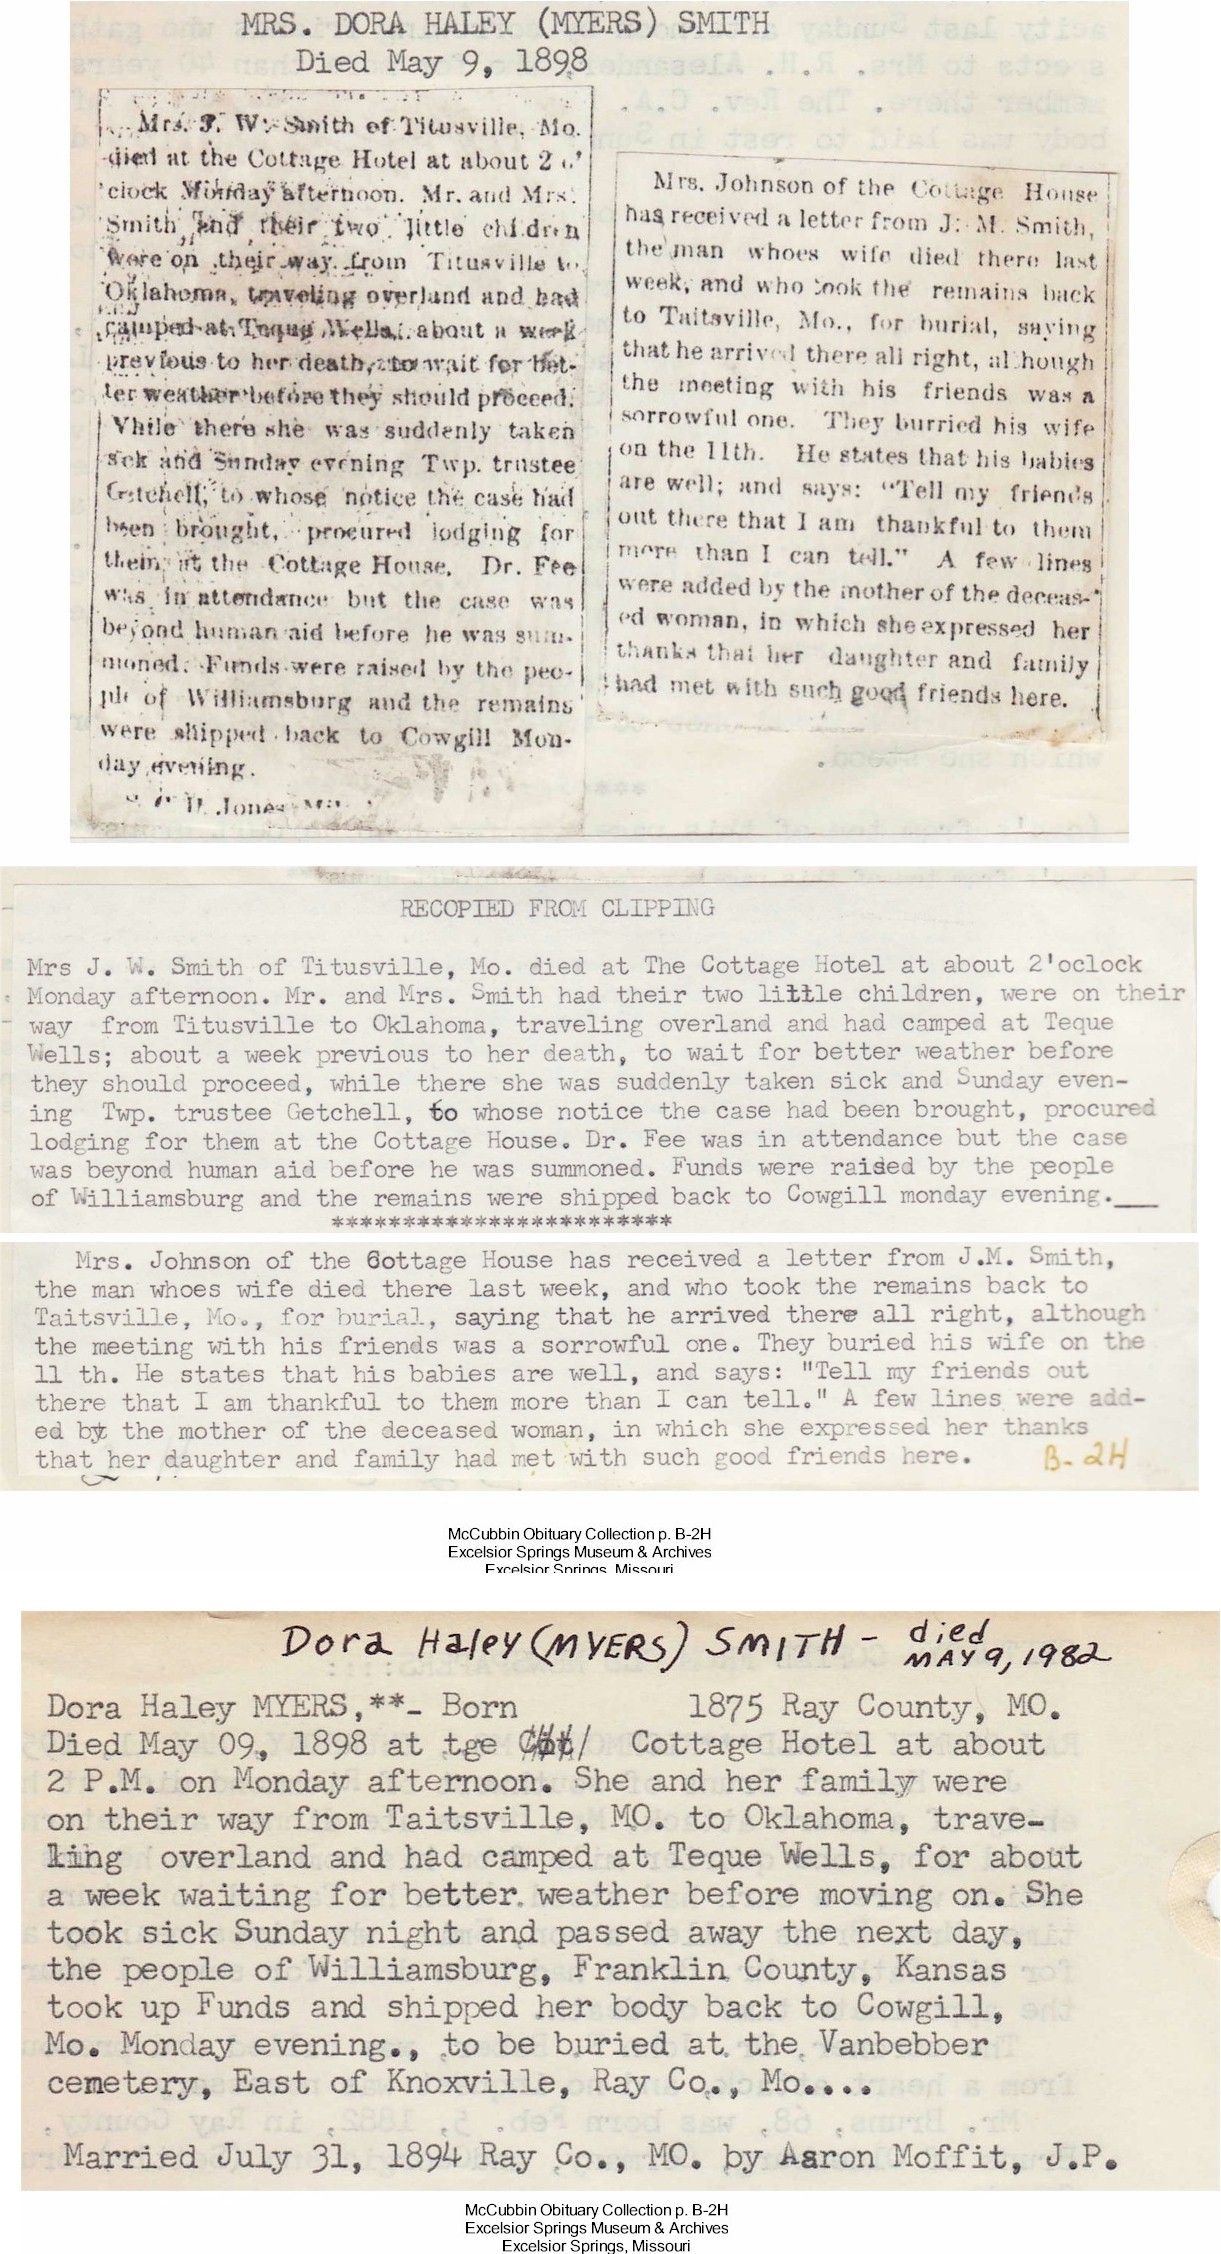 MRS. DORA HALEY (MYERS) SMITH
Died May 9, 1898
Mrs. J. W. Smith of Titusville, Mo.
died at the Cottage Hotel at about 2 o'
clock Monday afternoon. Mr. and Mrs.
Smith and their two little children
were on their way from Titusville to
Oklahoma, traveling overland and had
camped at Teque Wells, about a week
previous to her death, to wait for bet-
ter weather before they should proceed.
While there she was suddenly taken
sick and Sunday evening Twp. trustee
Getchell, to whose notice the case had
been brought, procured lodging for
them at the Cottage House. Dr. Fee
was in attendance but the case was
beyond human aid before he was sum-
moned. Funds were raised by the peo-
ple of Williamsburg and the remains
were shipped back to Cowgill Mon-
day evening.
Jones
Mrs. Johnson of the Cottage House
has received a letter from J. M. Smith,
the man whoes wife died there last
week, and who took the remains back
to Taitsville, Mo., for burial, saying
that he arrived there all right, although
the meeting with his friends was a
sorrowful one. They burried his wife
on the 11th. He states that his babies
are well; and says: "Tell my friends
out there that I am thankful to them
more than I can tell." A few lines
were added by the mother of the deceas-
ed woman, in which she expressed her
thanks that her daughter and family
had met with such good friends here.
RECOPIED FROM CLIPPING
Mrs J. W. Smith of Titusville, Mo. died at The Cottage Hotel at about 2'oclock
Monday afternoon. Mr. and Mrs. Smith had their two little children, were on their
way from Titusville to Oklahoma, traveling overland and had camped at Teque
Wells; about a week previous to her death, to wait for better weather before
they should proceed, while there she was suddenly taken sick and Sunday even-
ing Twp. trustee Getchell, to whose notice the case had been brought, procured
lodging for them at the Cottage House. Dr. Fee was in attendance but the case
was beyond human aid before he was summoned. Funds were raised by the people
of Williamsburg and the remains were shipped back to Cowgill monday evening.___
************************
Mrs. Johnson of the Cottage House has received a letter from J.M. Smith,
the man whoes wife died there last week, and who took the remains back to
Taitsville, Mo., for burial, saying that he arrived there all right, although
the meeting with his friends was a sorrowful one. They buried his wife on the
11 th. He states that his babies are well, and says: "Tell my friends out
there that I am thankful to them more than I can tell." A few lines were add-
ed by the mother of the deceased woman, in which she expressed her thanks
that her daughter and family had met with such good friends here.
B-2H
McCubbin Obituary Collection p. B-2H
Excelsior Springs Museum & Archives
Excelsior Springs, Missouri
Dora Haley (MYERS) SMITH - died
MAY 9, 1982
Dora Haley MYERS,**- Born 1875 Ray County, MO.
Died May 09, 1898 at tge Cottage Hotel at about
2 P.M. on Monday afternoon. She and her family were
on their way from Taitsville, MO. to Oklahoma, trave-
ling overland and had camped at Teque Wells, for about
a week waiting for better weather before moving on. She
took sick Sunday night and passed away the next day,
the people of Williamsburg, Franklin County, Kansas
took up Funds and shipped her body back to Cowgill,
Mo. Monday evening., to be buried at the Vanbebber
cemetery, East of Knoxville, Ray Co., Mo....
Married July 31, 1894 Ray Co., MO. by Aaron Moffit, J.P.
McCubbin Obituary Collection p. B-2H
Excelsior Springs Museum & Archives
Excelsior Springs, Missouri